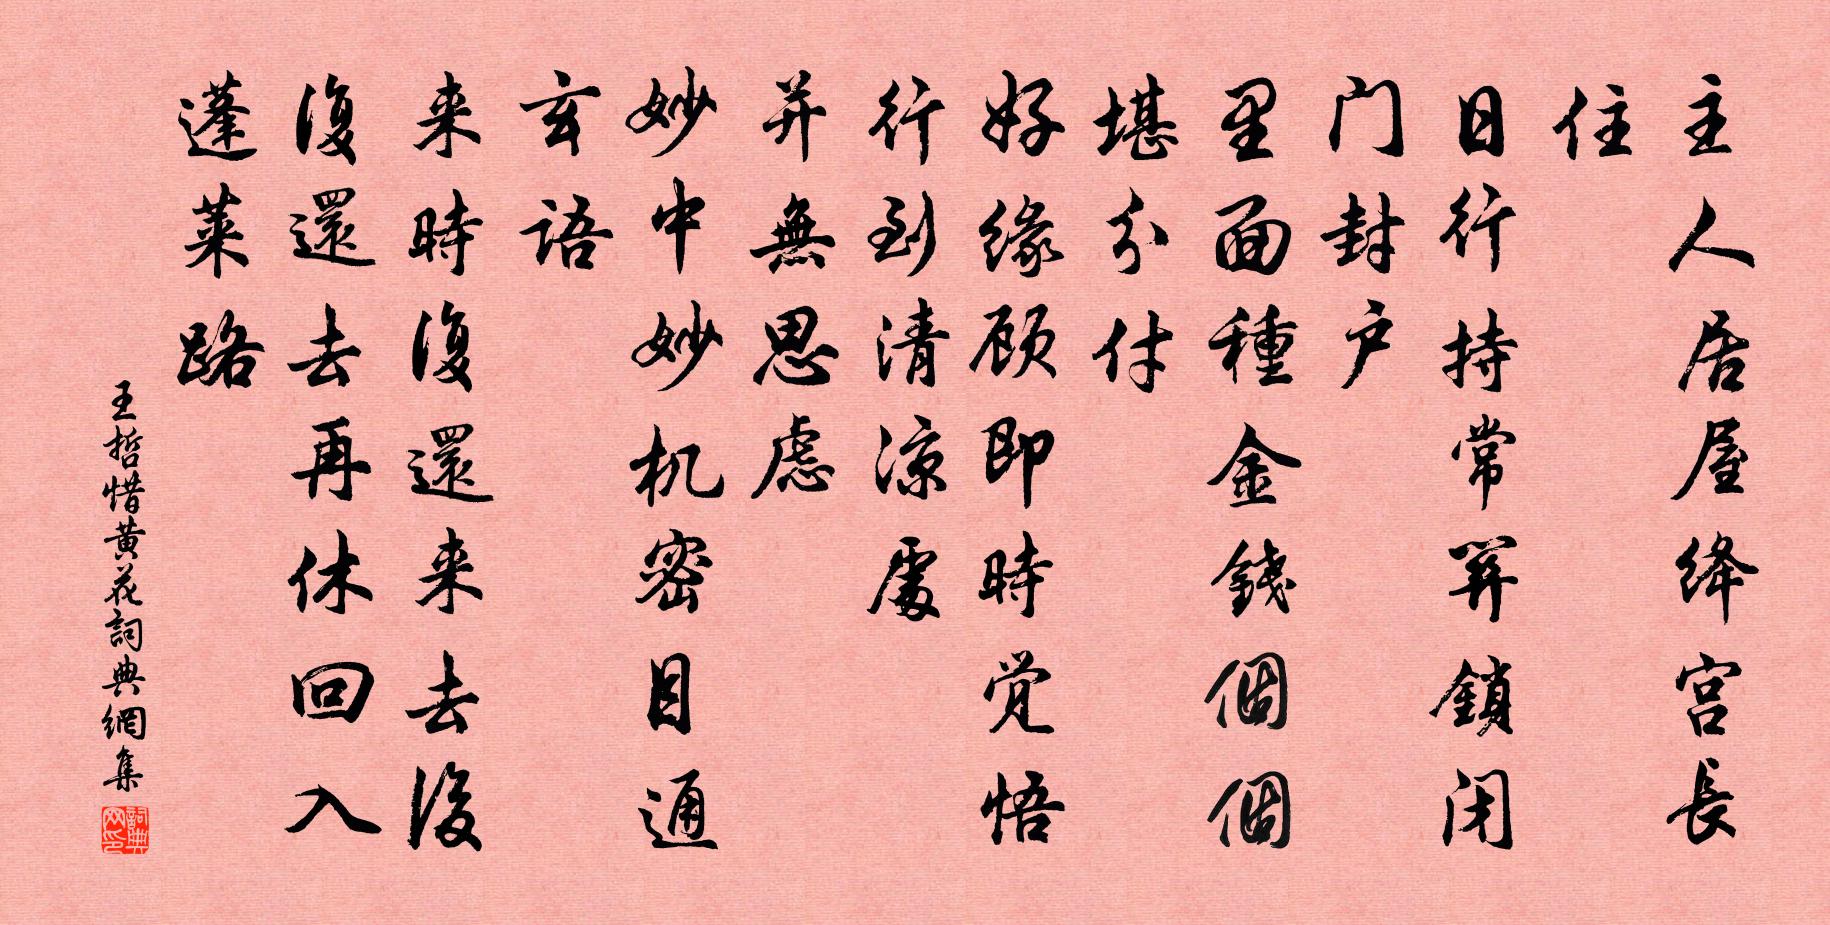 主人居屋绛宫長
住
日行持常開鎖闭
门封户
里面種金錢個個
堪分付
好缘顾即時觉悟
行到清凉處
并無思虑
妙中妙机密目通
玄語
来時復還来去後
復還去再休回入
蓬莱路
王哲惜黄花詞典網集
詞典网印